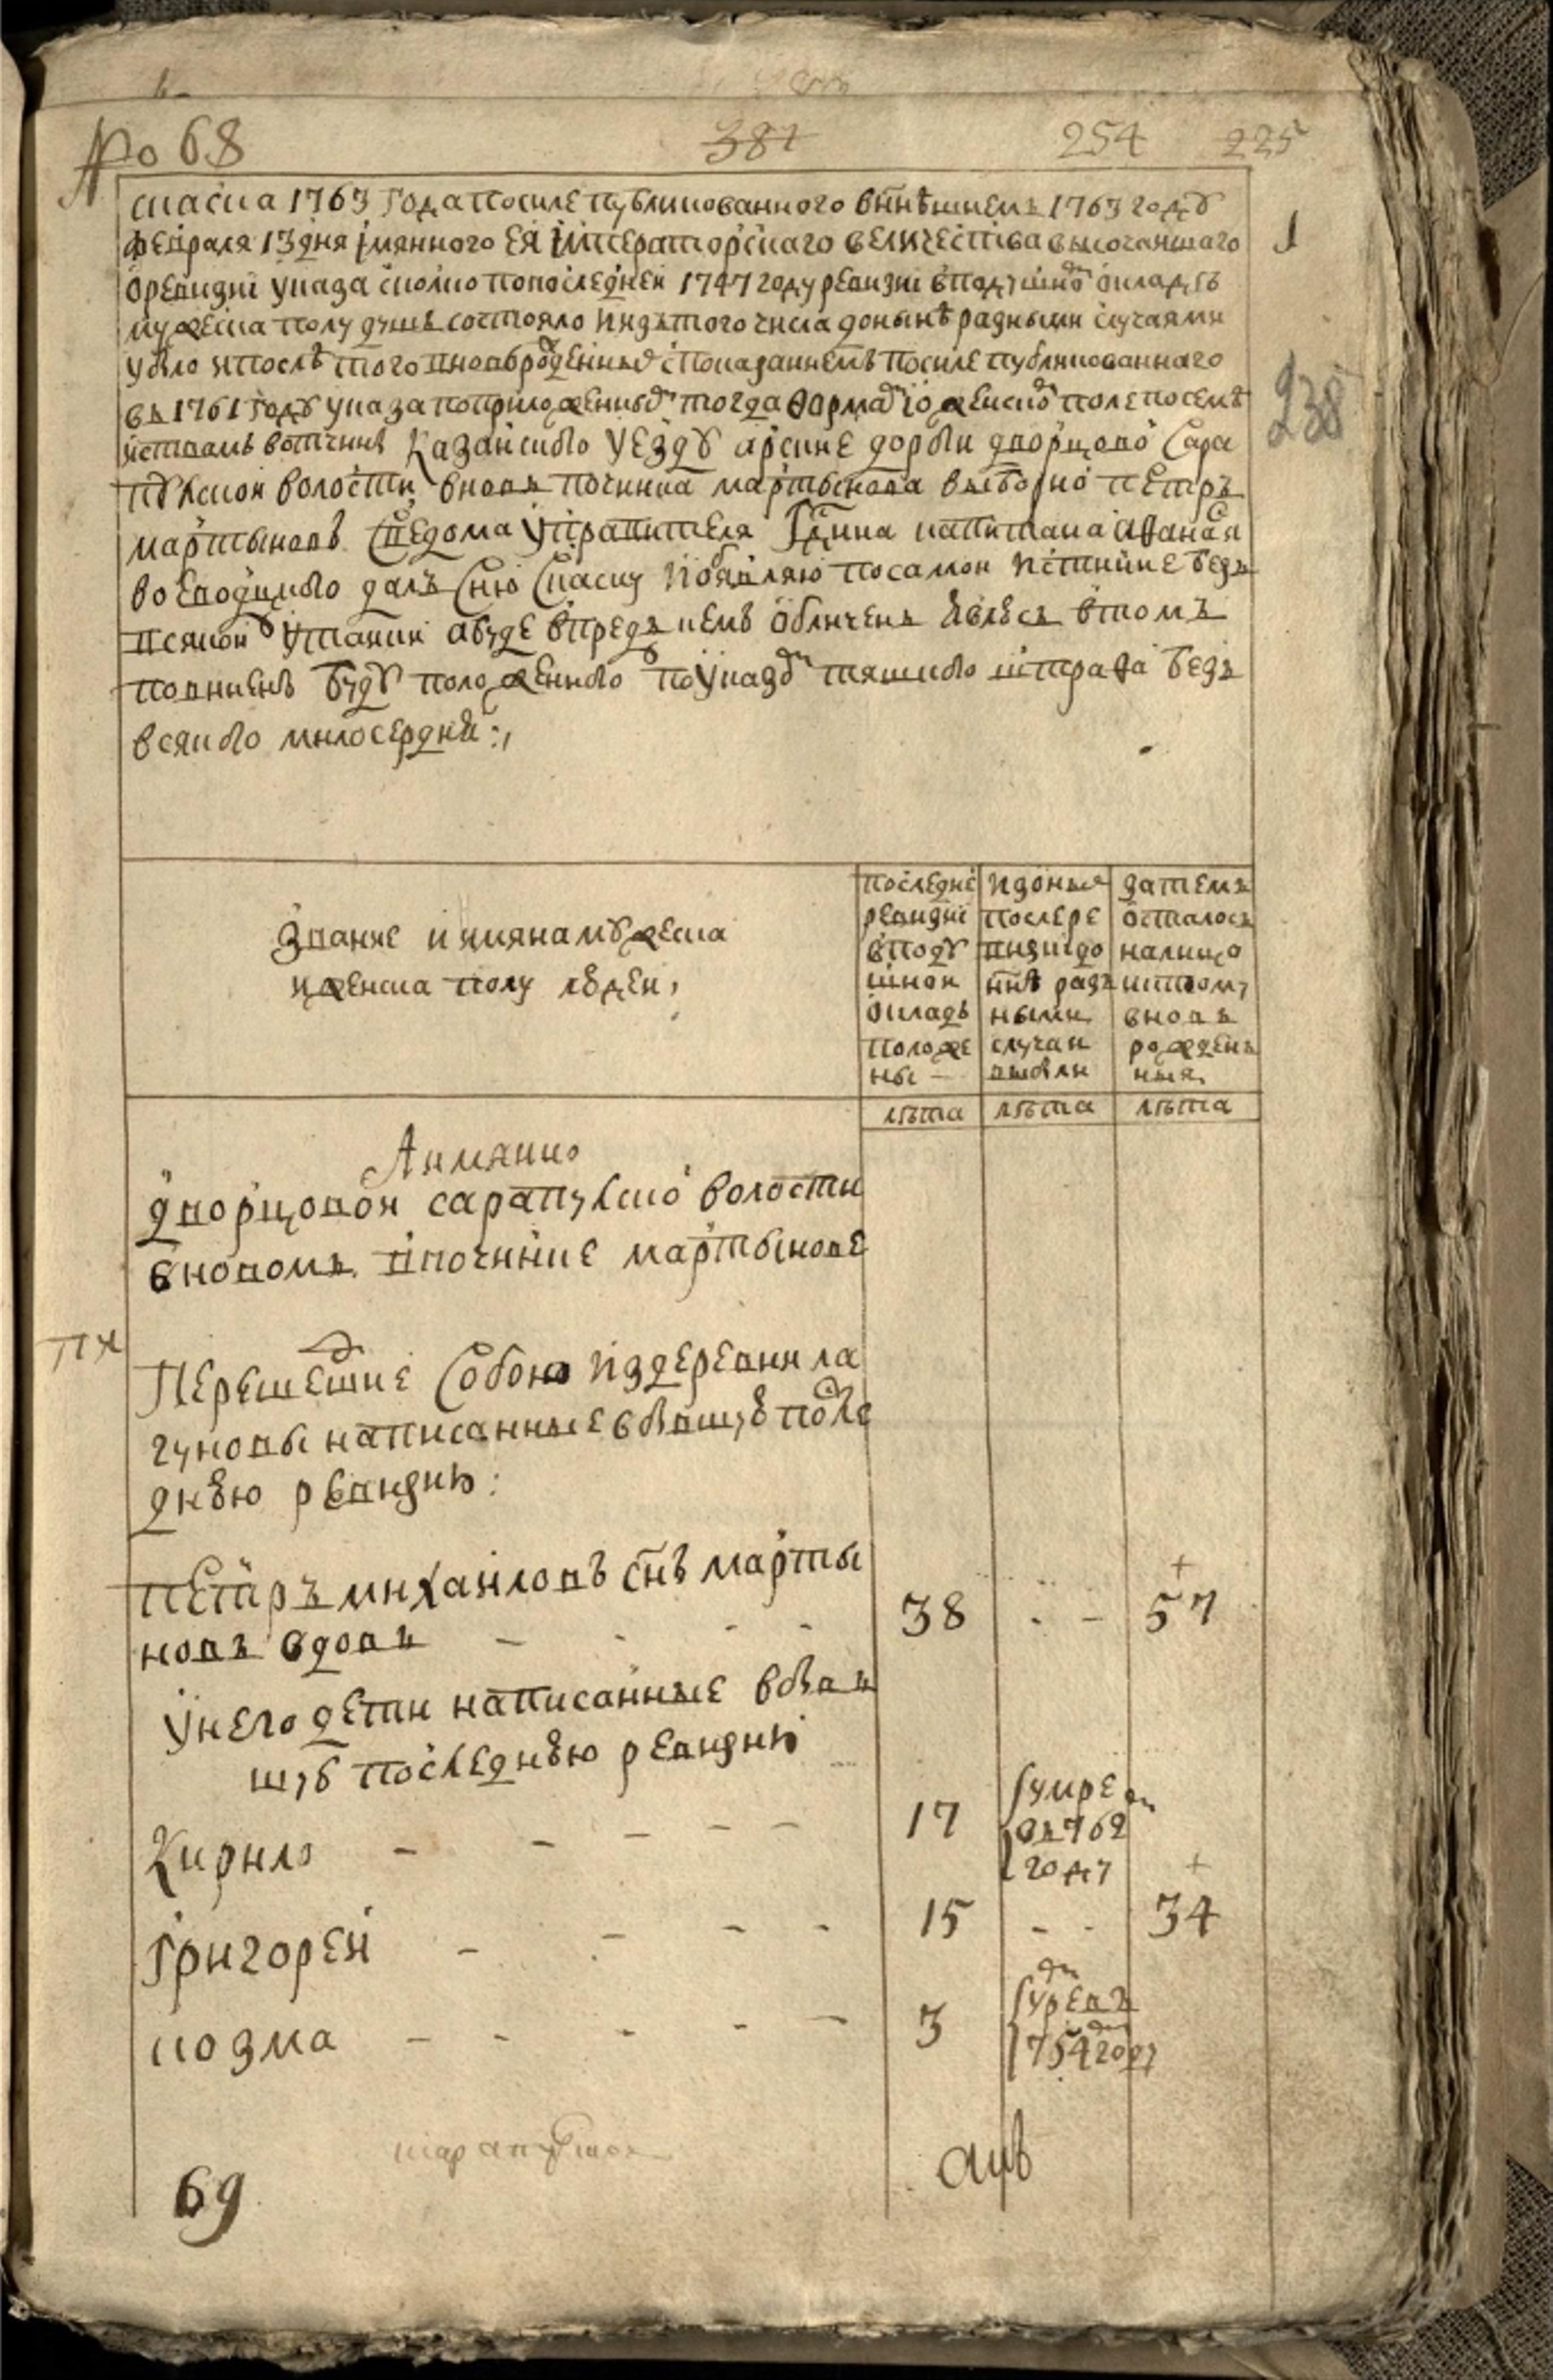 № 68 387 254 225
скаска 1763 году а посиле публикованного в ннѣшнемъ 1763 году
февраля 13 дня імянного ея імператорскаго величества высочаишаго
о ревизиі указа сколко по последней 1747 году ревизиі в подушно окладѣ
мужеска полу душъ состояло и изъ того числа донынѣ разными случаями
убыло и послѣ того вновь рожденных с показаниемъ по силе публикованнаго
въ 1761 году указа по приложенным тогда формам и о женско поле по семъ
1
238
Казанского уезду арские дороги дворцово Сара
пулской волости вновь починка мартынова выборно петръ
мартыновъ с ведома управителя Гдина капитана Афанася
воеводцкого далъ сию скаску и объявляю по самой истинне безъ
всякой утайки а буде впредь кемъ обличенъ явлюсь в томъ
повиненъ буду положенного по указом тяшкого штрафа безъ
всякого милосердия:,
Звание и имяна мужеска
и женска полу людей,
последне ревизиі в поду шной окладъ положе ны –
из оныхъ после ре визиі до ннѣ разъ ными случаи выбыли
затемъ осталось налицо и к тому вновь рожденъ ныя
лѣта лѣта лѣта
А имянно
дворцовой сарапулско волости
в новомъ починке мартынове
Перешедшие собою из деревни ла
гуновы написанные в бывшую после
днюю ревизию:
петръ михаиловъ снъ марты
новъ вдовъ – – – – 38 . – 57 +
у него дети написанные в быв
шую последнюю ревизию
Кирило – – – – – 17 умре въ 762 году
Григорей – – – – 15 – - 34 +
козма – – – – – 3 умре въ 754 году
69